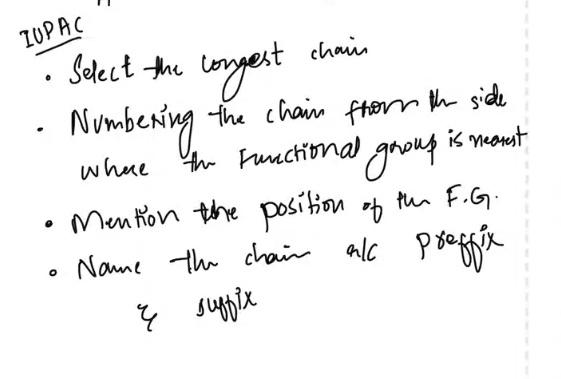 IUPAC
• Select the longest chain
• Numbering the chain from the side
where the Functional group is nearest
• Mention the position of the F.G.
• Name the chain a/c preffix
& suffix